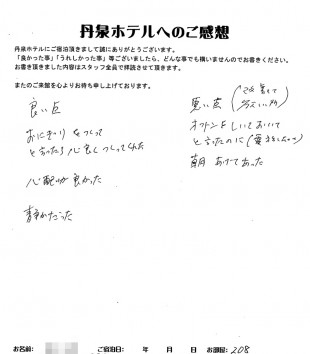 丹泉ホテルへのご感想
丹泉ホテルにご宿泊頂きまして誠にありがとうございます。
「良かった事」「うれしかった事」等ございましたら、どんな事でも構いませんのでお書きください。
お書き頂きました内容はスタッフ全員で拝読させて頂きます。
またのご来館を心よりお待ち申し上げております。
良い点
おにぎりをつくって
と言ったら心良くつくってくれた
心配りが良かった
静かだった
悪い点
オフトンをしいておいて
と言ったのに
朝あけてあった
お名前: ご宿泊日: 年 月 日 お部屋: 208